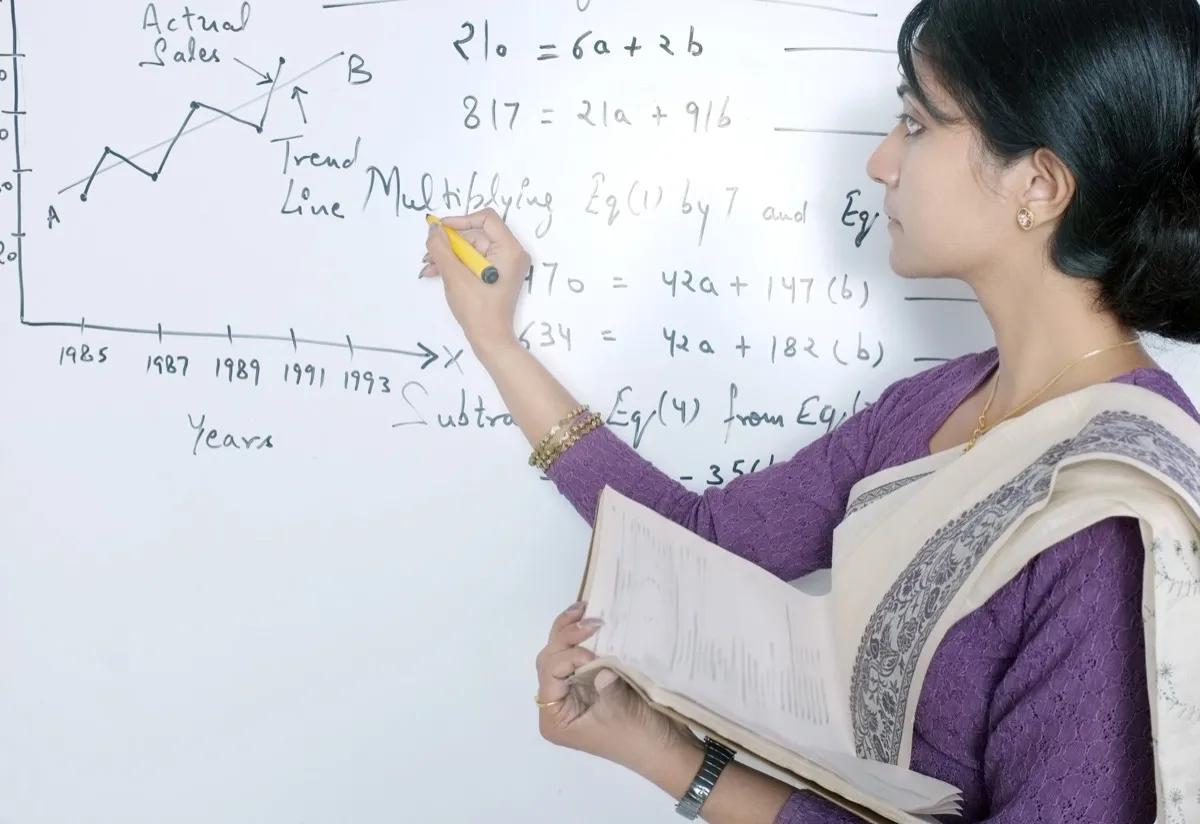 Actual
Sales
B
Trend
Line
A
1985 1987 1989 1991 1993 X
Years
210 = 6a + 2b
817 = 21a + 91b
Multiplying Eq(1) by 7 and Eq
470 = 42a + 147(b)
634 = 42a + 182(b)
Eq(4) from Eq
- 35(b